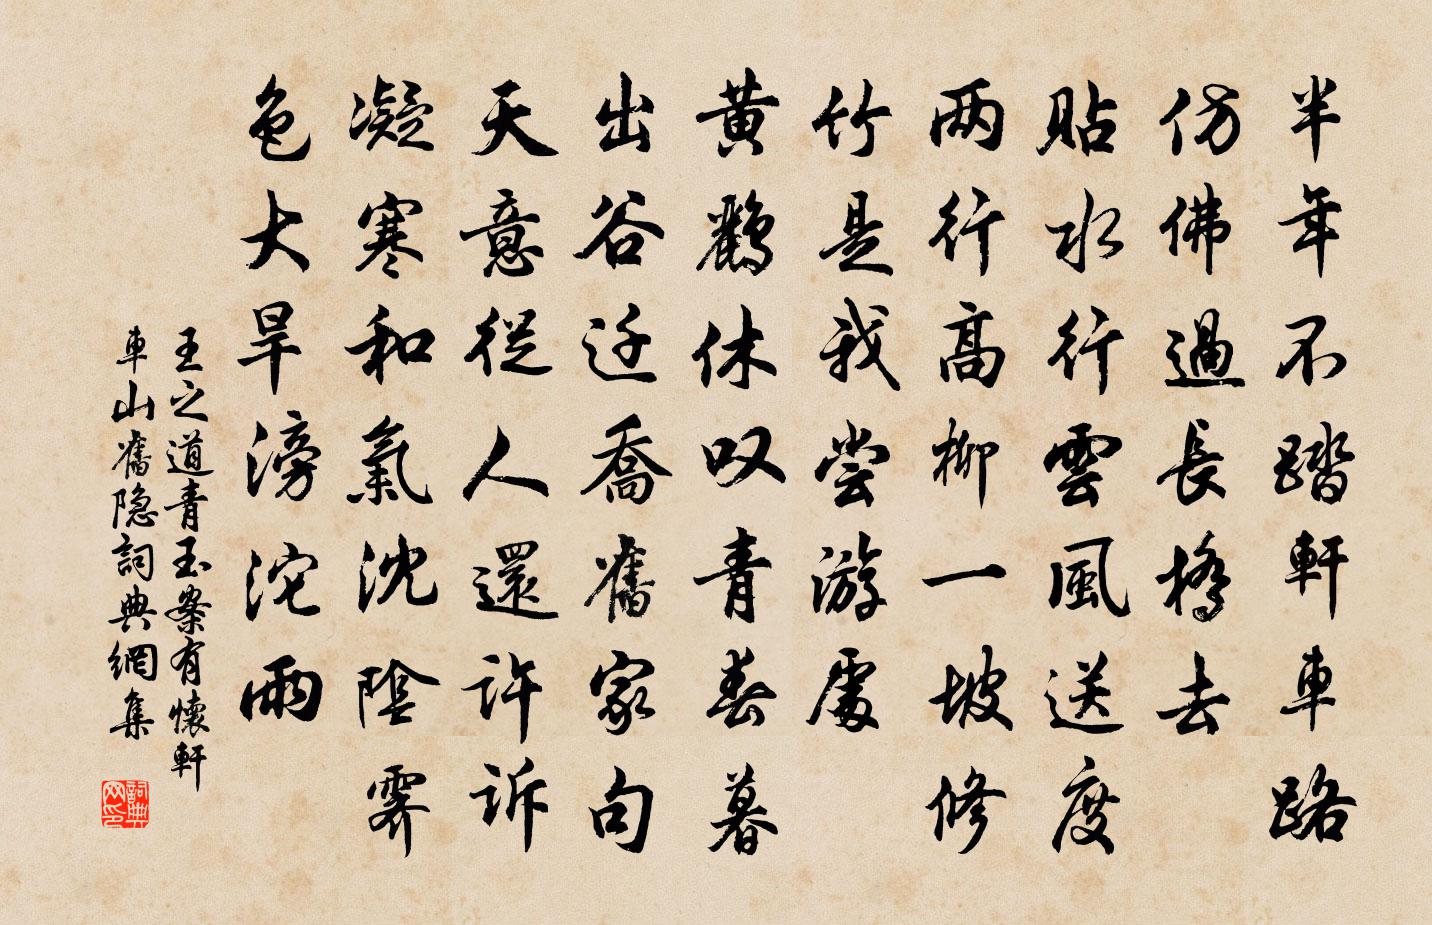 半年不踏軒車路
仿佛過長橋去
貼水行雲風送度
两行高柳一坡修
竹是我尝游處
黄鸝休叹青春暮
出谷迁喬舊家句
天意從人還許訴
凝寒和氣沈陰霁
色大旱滂沱雨
王之道青玉案有懷軒
車山舊隐詞典網集
詞典
网印